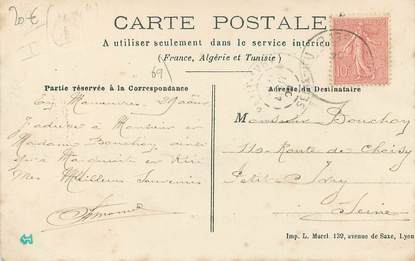 20 €
CARTE POSTALE
A utiliser seulement dans le service intérieur
(France, Algérie et Tunisie)
69)
Partie réservée à la Correspondance
Adresse du Destinataire
En Manœuvres
J'adresse à Monsieur et
Madame Bouchoy, ainsi
qu'à Marguerite et
Mes Meilleurs Souvenirs
Monsieur Bouchoy
110 Route de Choisy
Petit Ivry
Seine
Imp. L. Marel. 139, avenue de Saxe, Lyon